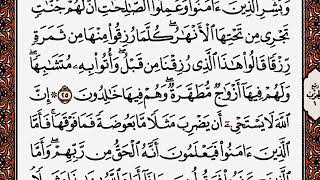 وَبَشِّرِ ٱلَّذِينَ ءَامَنُوا۟ وَعَمِلُوا۟ ٱلصَّـٰلِحَـٰتِ أَنَّ لَهُمْ جَنَّـٰتٍ
تَجْرِى مِن تَحْتِهَا ٱلْأَنْهَـٰرُ ۖ كُلَّمَا رُزِقُوا۟ مِنْهَا مِن ثَمَرَةٍ
رِّزْقًا قَالُوا۟ هَـٰذَا ٱلَّذِى رُزِقْنَا مِن قَبْلُ ۖ وَأُتُوا۟ بِهِۦ مُتَشَـٰبِهًا ۖ
وَلَهُمْ فِيهَآ أَزْوَٰجٌ مُّطَهَّرَةٌ ۖ وَهُمْ فِيهَا خَـٰلِدُونَ ٢٥ ۞ إِنَّ
ٱللَّهَ لَا يَسْتَحْىِۦٓ أَن يَضْرِبَ مَثَلًا مَّا بَعُوضَةً فَمَا فَوْقَهَا ۚ فَأَمَّا
ٱلَّذِينَ ءَامَنُوا۟ فَيَعْلَمُونَ أَنَّهُ ٱلْحَقُّ مِن رَّبِّهِمْ ۖ وَأَمَّا